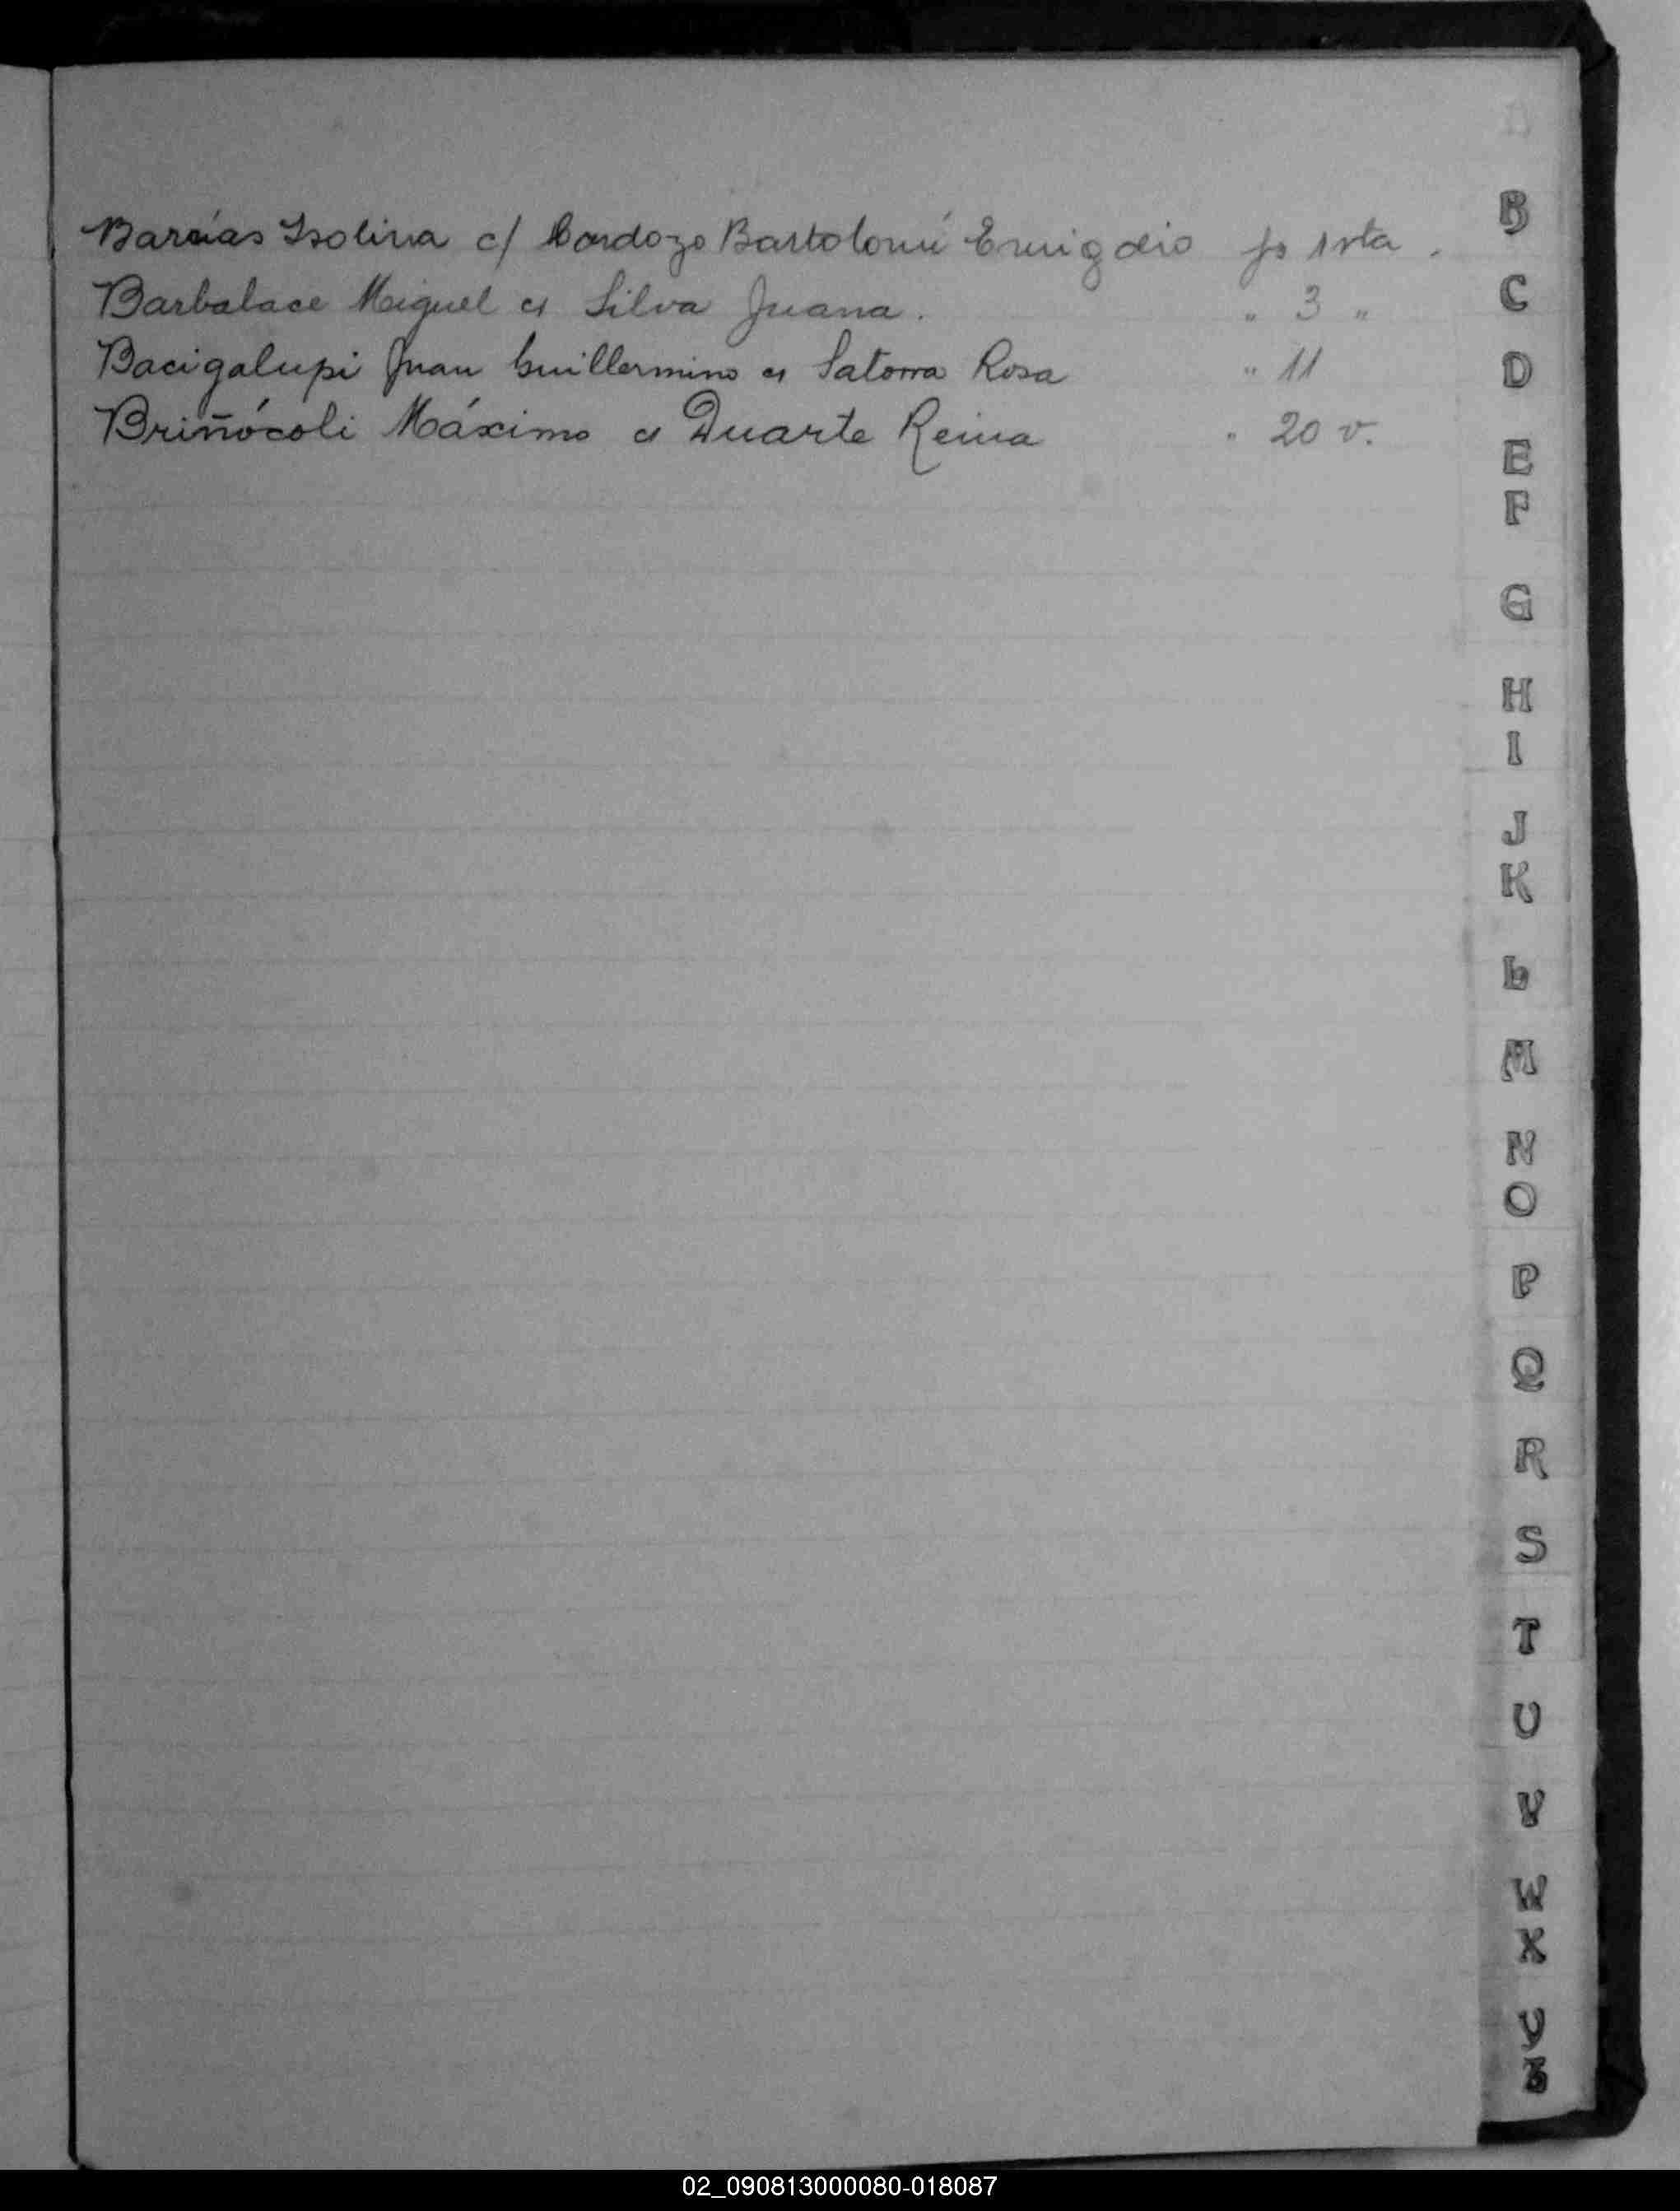 Barcías Isolina c/ Cardozo Bartolomé Emigdio fs 1vta.
Barbalace Miguel c/ Silva Juana. " 3 "
Bacigalupi Juan Guillermino c/ Satorra Rosa " 11
Briñócoli Máximo c/ Duarte Reina " 20 v.
B
C
D
E
F
G
H
I
J
K
L
M
N
O
P
Q
R
S
T
U
V
W
X
Y
Z
02_090813000080-018087